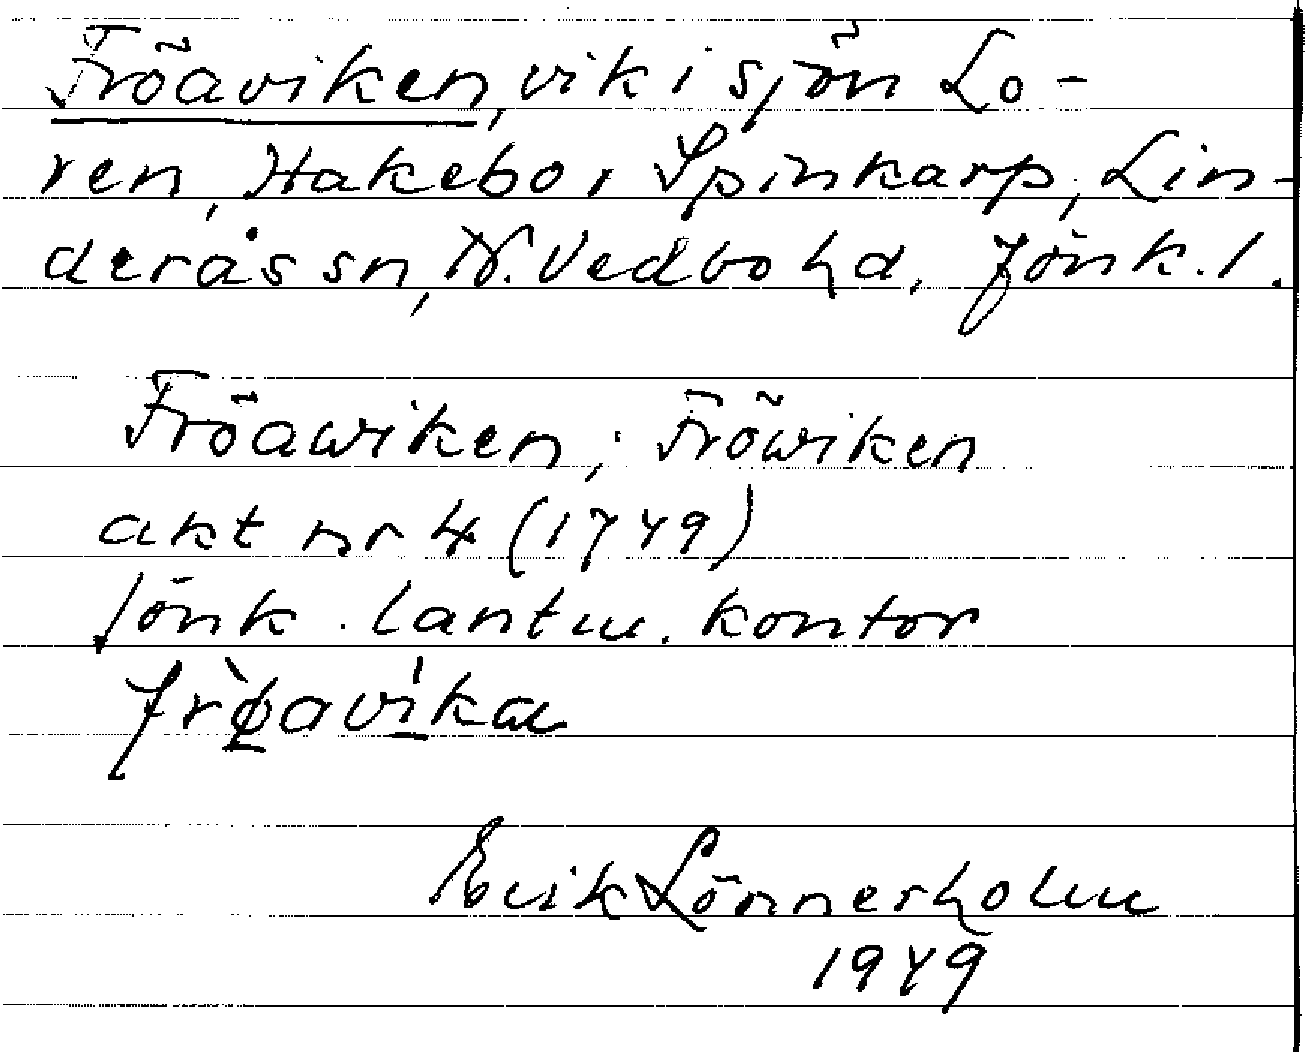 Fröaviken, vik i sjön Lo-
ren, Hakebo, Spinkarp, Lin-
derås sn, N. Vedbo hd, Jönk. l.
Fröawiken; Fröwiken
akt nr 4 (1749)
Jönk. lantm. kontor
frø̀aví̱ka
Erik Lönnerholm
1949